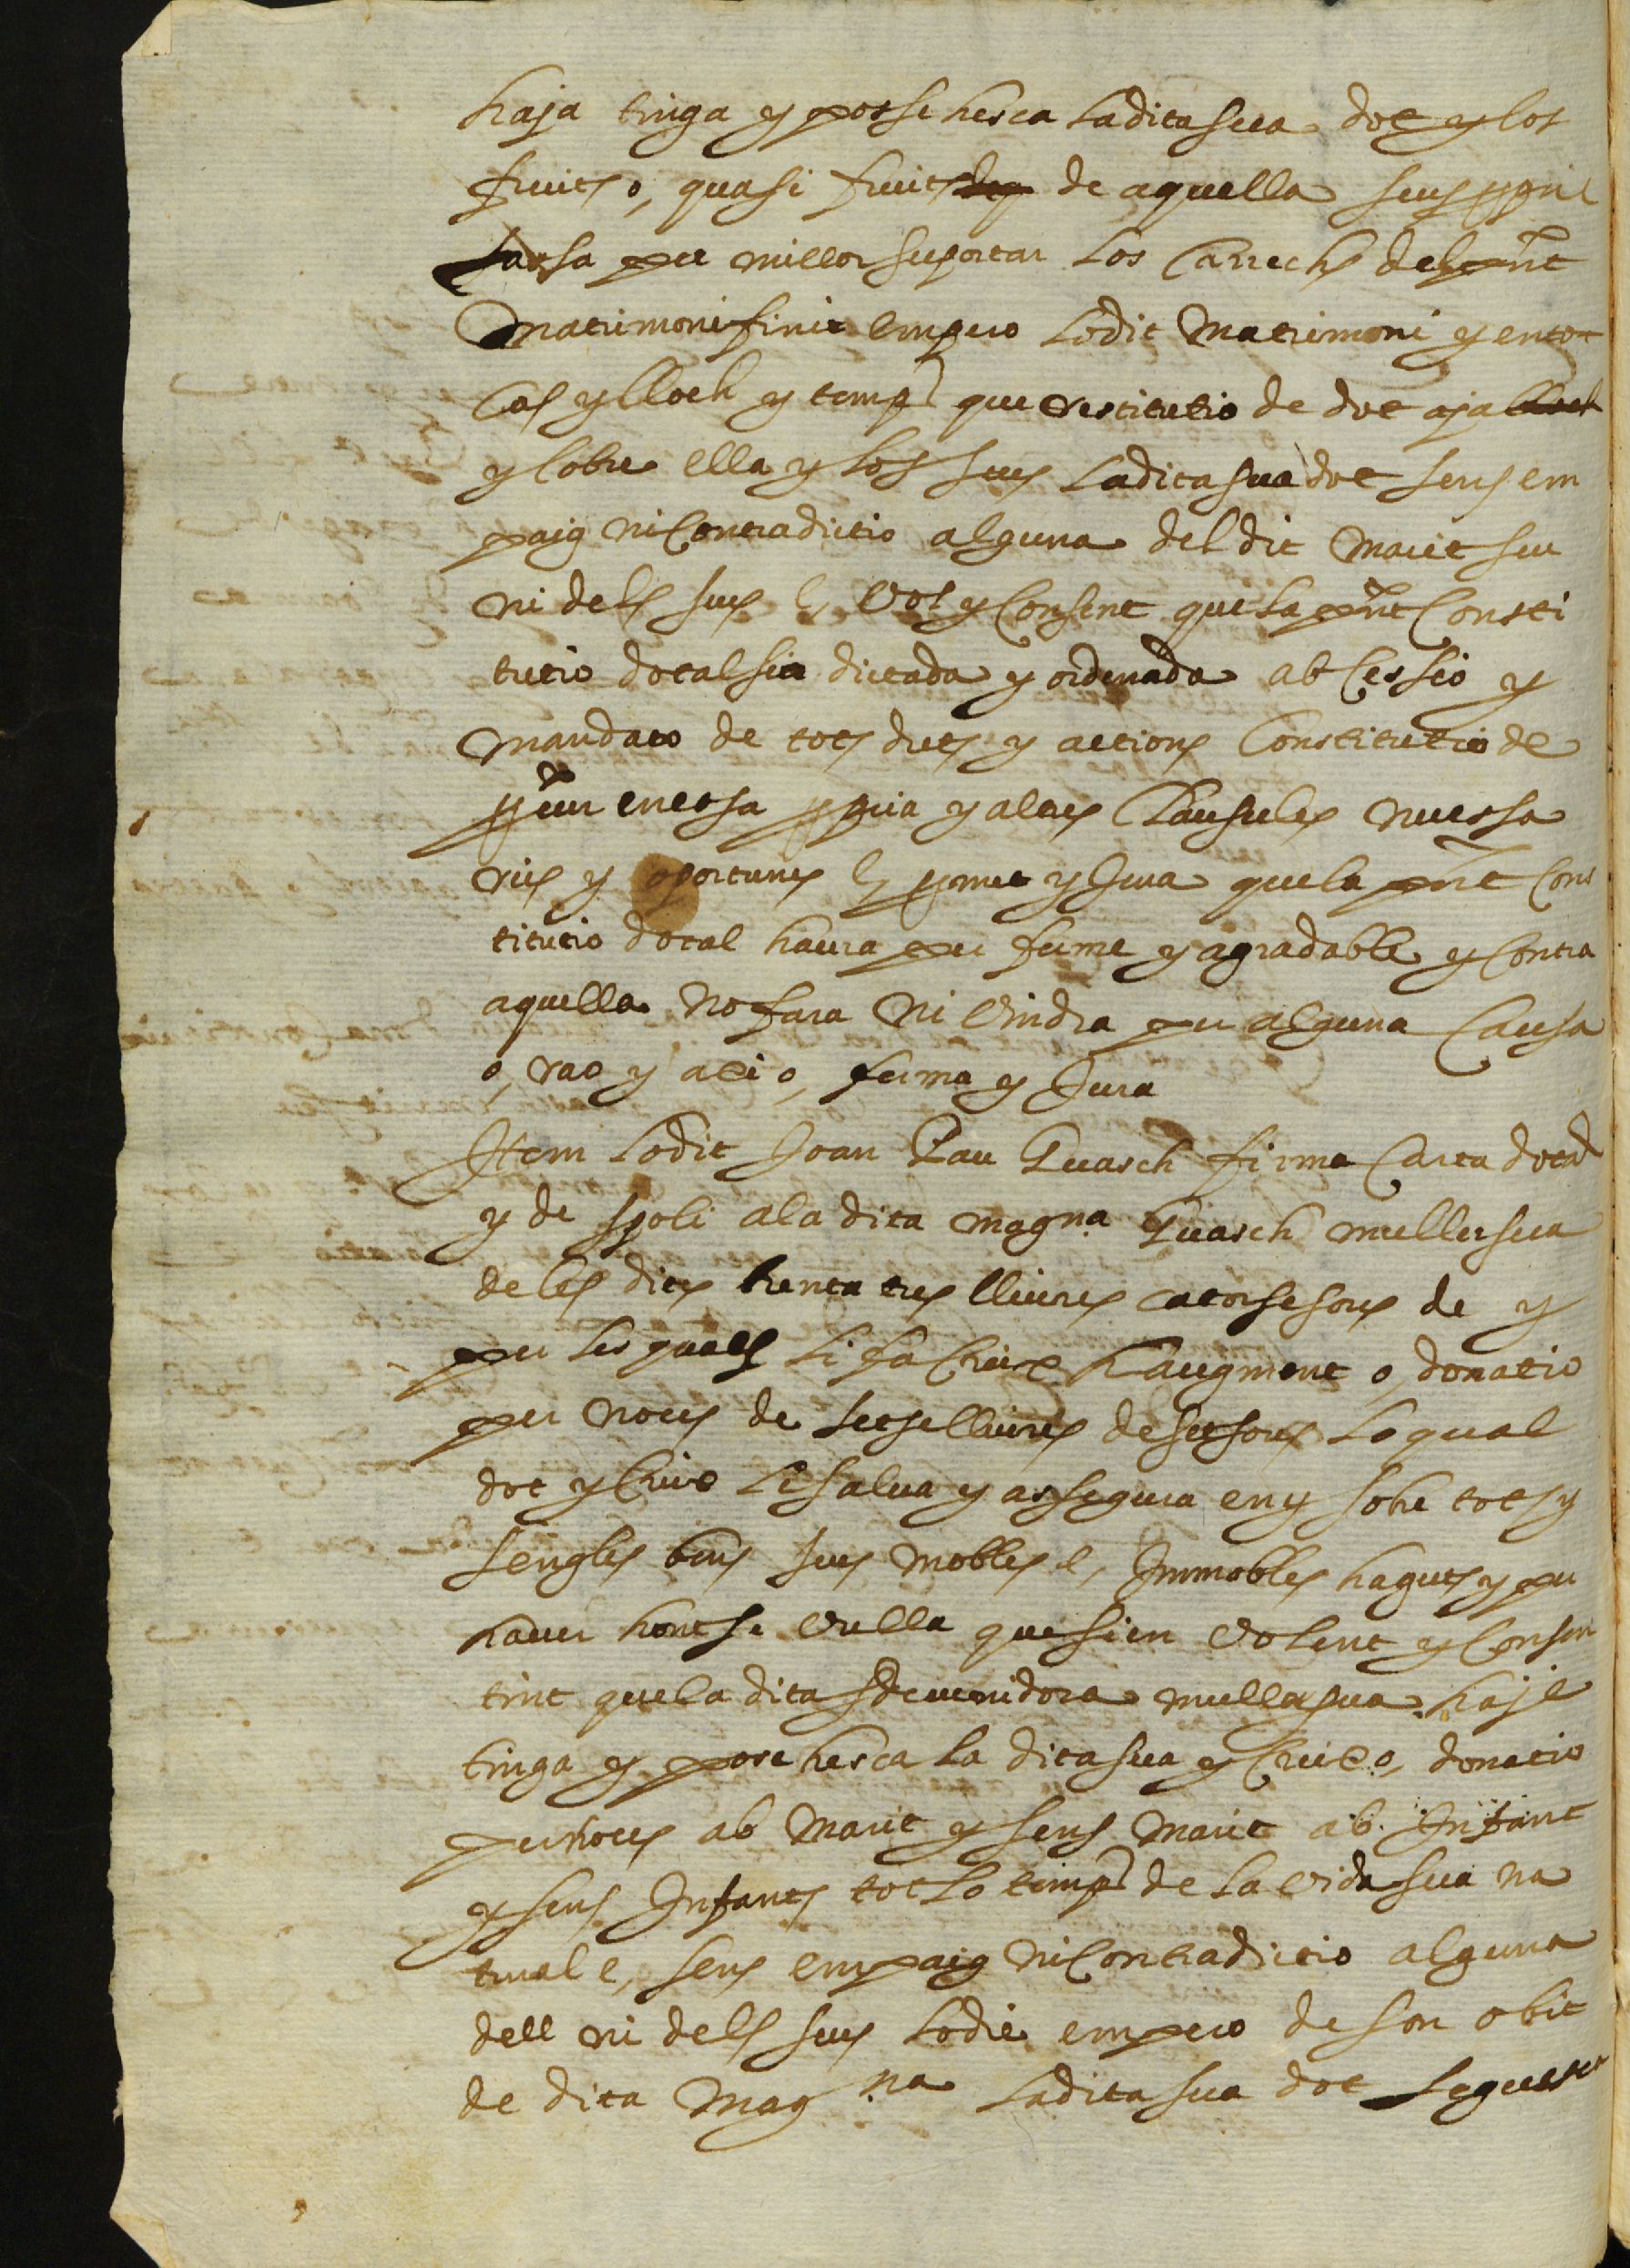 haja tinga y possehesca la dita sua dot y los
fruits o, quasi fruits de aquella sens
causa per millor suportar los carrechs del pñt
matrimoni finit empero lo dit matrimoni y en tot
cas y lloch y temps que restitutio de dot aja
y cobre ella y los seus la dita sua dot sens em
paig ni contradictio alguna del dit marit seu
ni dels seus E vol y consent que la pñt consti
tutio dotal sia dictada y ordenada ab cessio y
mandato de tots drets y actions constitutio de
pcur en cosa ppria y altres clausules necessa
ries y oportunes E pmet y jura que la pñt cons
titutio dotal haura per ferme y agradable y contra
aquella no fara ni vindra per alguna causa
o, rao y axi o, ferma y jura
Item lo dit Joan Pau Guasch firma carta dotal
y de spoli a la dita magna Guasch muller sua
de les dites trenta tres lliures catorse sous de y
per les quals li fa creix E augment o, donatio
per noces de setse lliures de set sous Lo qual
dot y creix li salva y assegura en y sobre tots y
sengles bens seus mobles e, Immobles haguts y per
haver hont se vulla que sien volent y consen
tint que la dita sdevenidora muller sua haje
tinga y posehesca la dita sua y creix o, donatio
per noces ab marit y sens marit ab Infant
y sens Infants tot lo temps de la vida sua na
tural e, sens empaig ni contradictio alguna
dell ni dels seus Lo die empero de son obit
de dita Magna La dita sua dot